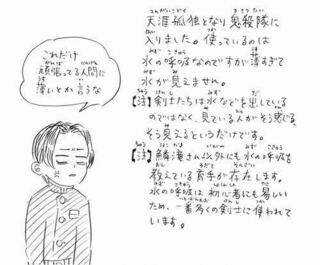 天涯孤独となり鬼殺隊に
入りました。使っているのは
水の呼吸なのですが薄すぎて
水が見えません。
【注】剣士たちは水などを出している
のではなく、見ている人がそう感じる、
そう見えるというだけです。
【注】鱗滝さん以外にも水の呼吸を
教えている育手が存在します。
水の呼吸は初心者にも易しい
ため、一番多くの剣士に使われて
います。
これだけ
頑張ってる人間に
薄いとか言うな